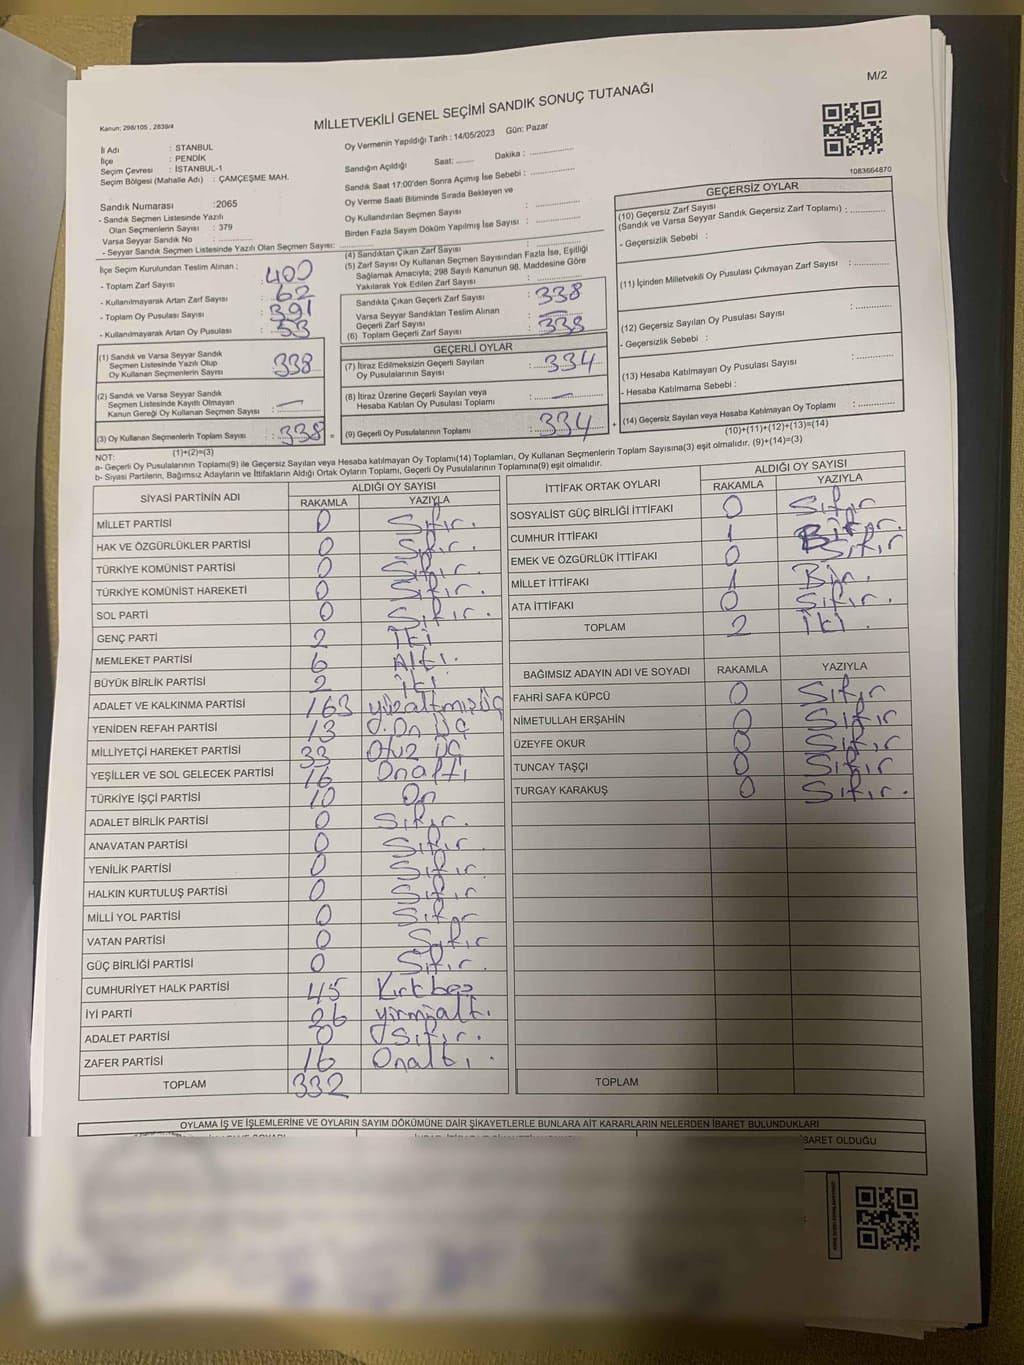 M/2
Kanun; 298/105 , 2839/4
MİLLETVEKİLİ GENEL SEÇİMİ SANDIK SONUÇ TUTANAĞI
İl Adı : STANBUL
İlçe : PENDİK
Seçim Çevresi : İSTANBUL-1
Seçim Bölgesi (Mahalle Adı) : ÇAMÇEŞME MAH.
Sandık Numarası :2065
- Sandık Seçmen Listesinde Yazılı
Olan Seçmenlerin Sayısı : 379
Varsa Seyyar Sandık No : ..............
- Seyyar Sandık Seçmen Listesinde Yazılı Olan Seçmen Sayısı: ..............
Oy Vermenin Yapıldığı Tarih : 14/05/2023 Gün: Pazar
Sandığın Açıldığı Saat: ....... Dakika : ..............
Sandık Saat 17:00'den Sonra Açımış İse Sebebi : ..............
Oy Verme Saati Bitiminde Sırada Bekleyen ve
Oy Kullandırılan Seçmen Sayısı : ..............
Birden Fazla Sayım Döküm Yapılmış İse Sayısı : ..............
1083664870
İlçe Seçim Kurulundan Teslim Alınan ;
- Toplam Zarf Sayısı : 400
- Kullanılmayarak Artan Zarf Sayısı : 62
- Toplam Oy Pusulası Sayısı : 391
- Kullanılmayarak Artan Oy Pusulası : 53
(1) Sandık ve Varsa Seyyar Sandık
Seçmen Listesinde Yazılı Olup
Oy Kullanan Seçmenlerin Sayısı 338
(2) Sandık ve Varsa Seyyar Sandık
Seçmen Listesinde Kayıtlı Olmayan
Kanun Gereği Oy Kullanan Seçmen Sayısı : —
(3) Oy Kullanan Seçmenlerin Toplam Sayısı : 338 =
(1)+(2)=(3)
(4) Sandıktan Çıkan Zarf Sayısı : ..............
(5) Zarf Sayısı Oy Kullanan Seçmen Sayısından Fazla İse, Eşitliği
Sağlamak Amacıyla; 298 Sayılı Kanunun 98. Maddesine Göre
Yakılarak Yok Edilen Zarf Sayısı : ..............
Sandıkta Çıkan Geçerli Zarf Sayısı : 338
Varsa Seyyar Sandıktan Teslim Alınan
Geçerli Zarf Sayısı : —
(6) Toplam Geçerli Zarf Sayısı : 338
GEÇERLİ OYLAR
(7) İtiraz Edilmeksizin Geçerli Sayılan
Oy Pusulalarının Sayısı : 334
(8) İtiraz Üzerine Geçerli Sayılan veya
Hesaba Katılan Oy Pusulası Toplamı : —
(9) Geçerli Oy Pusulalarının Toplamı : 334 +
GEÇERSİZ OYLAR
(10) Geçersiz Zarf Sayısı
(Sandık ve Varsa Seyyar Sandık Geçersiz Zarf Toplamı) : ..............
- Geçersizlik Sebebi :
(11) İçinden Milletvekili Oy Pusulası Çıkmayan Zarf Sayısı : ..............
(12) Geçersiz Sayılan Oy Pusulası Sayısı : ..............
- Geçersizlik Sebebi :
(13) Hesaba Katılmayan Oy Pusulası Sayısı : ..............
- Hesaba Katılmama Sebebi :
(14) Geçersiz Sayılan veya Hesaba Katılmayan Oy Toplamı : ..............
(10)+(11)+(12)+(13)=(14)
NOT:
a- Geçerli Oy Pusulalarının Toplamı(9) ile Geçersiz Sayılan veya Hesaba katılmayan Oy Toplamı(14) Toplamları, Oy Kullanan Seçmenlerin Toplam Sayısına(3) eşit olmalıdır. (9)+(14)=(3)
b- Siyasi Partilerin, Bağımsız Adayların ve İttifakların Aldığı Ortak Oyların Toplamı, Geçerli Oy Pusulalarının Toplamına(9) eşit olmalıdır.
SİYASİ PARTİNİN ADI ALDIĞI OY SAYISI
RAKAMLA YAZIYLA
MİLLET PARTİSİ 0 Sıfır.
HAK VE ÖZGÜRLÜKLER PARTİSİ 0 Sıfır.
TÜRKİYE KOMÜNİST PARTİSİ 0 Sıfır.
TÜRKİYE KOMÜNİST HAREKETİ 0 Sıfır.
SOL PARTİ 0 Sıfır.
GENÇ PARTİ 2 İki
MEMLEKET PARTİSİ 6 Altı.
BÜYÜK BİRLİK PARTİSİ 2 İki
ADALET VE KALKINMA PARTİSİ 163 yüzaltmışüç
YENİDEN REFAH PARTİSİ 13 On Üç
MİLLİYETÇİ HAREKET PARTİSİ 33 Otuz üç
YEŞİLLER VE SOL GELECEK PARTİSİ 16 Onaltı
TÜRKİYE İŞÇİ PARTİSİ 10 On
ADALET BİRLİK PARTİSİ 0 Sıfır.
ANAVATAN PARTİSİ 0 Sıfır.
YENİLİK PARTİSİ 0 Sıfır.
HALKIN KURTULUŞ PARTİSİ 0 Sıfır
MİLLİ YOL PARTİSİ 0 Sıfır
VATAN PARTİSİ 0 Sıfır
GÜÇ BİRLİĞİ PARTİSİ 0 Sıfır.
CUMHURİYET HALK PARTİSİ 45 Kırkbeş
İYİ PARTİ 26 yirmialtı.
ADALET PARTİSİ 0 Sıfır.
ZAFER PARTİSİ 16 Onaltı.
TOPLAM 332
İTTİFAK ORTAK OYLARI ALDIĞI OY SAYISI
RAKAMLA YAZIYLA
SOSYALİST GÜÇ BİRLİĞİ İTTİFAKI 0 Sıfır
CUMHUR İTTİFAKI 1 Bir.
EMEK VE ÖZGÜRLÜK İTTİFAKI 0 Sıfır
MİLLET İTTİFAKI 1 Bir.
ATA İTTİFAKI 0 Sıfır.
TOPLAM 2 İki.
BAĞIMSIZ ADAYIN ADI VE SOYADI RAKAMLA YAZIYLA
FAHRİ SAFA KÜPCÜ 0 Sıfır
NİMETULLAH ERŞAHİN 0 Sıfır
ÜZEYFE OKUR 0 Sıfır
TUNCAY TAŞÇI 0 Sıfır
TURGAY KARAKUŞ 0 Sıfır.
TOPLAM
OYLAMA İŞ VE İŞLEMLERİNE VE OYLARIN SAYIM DÖKÜMÜNE DAİR ŞİKAYETLERLE BUNLARA AİT KARARLARIN NELERDEN İBARET BULUNDUKLARI
İBARET OLDUĞU